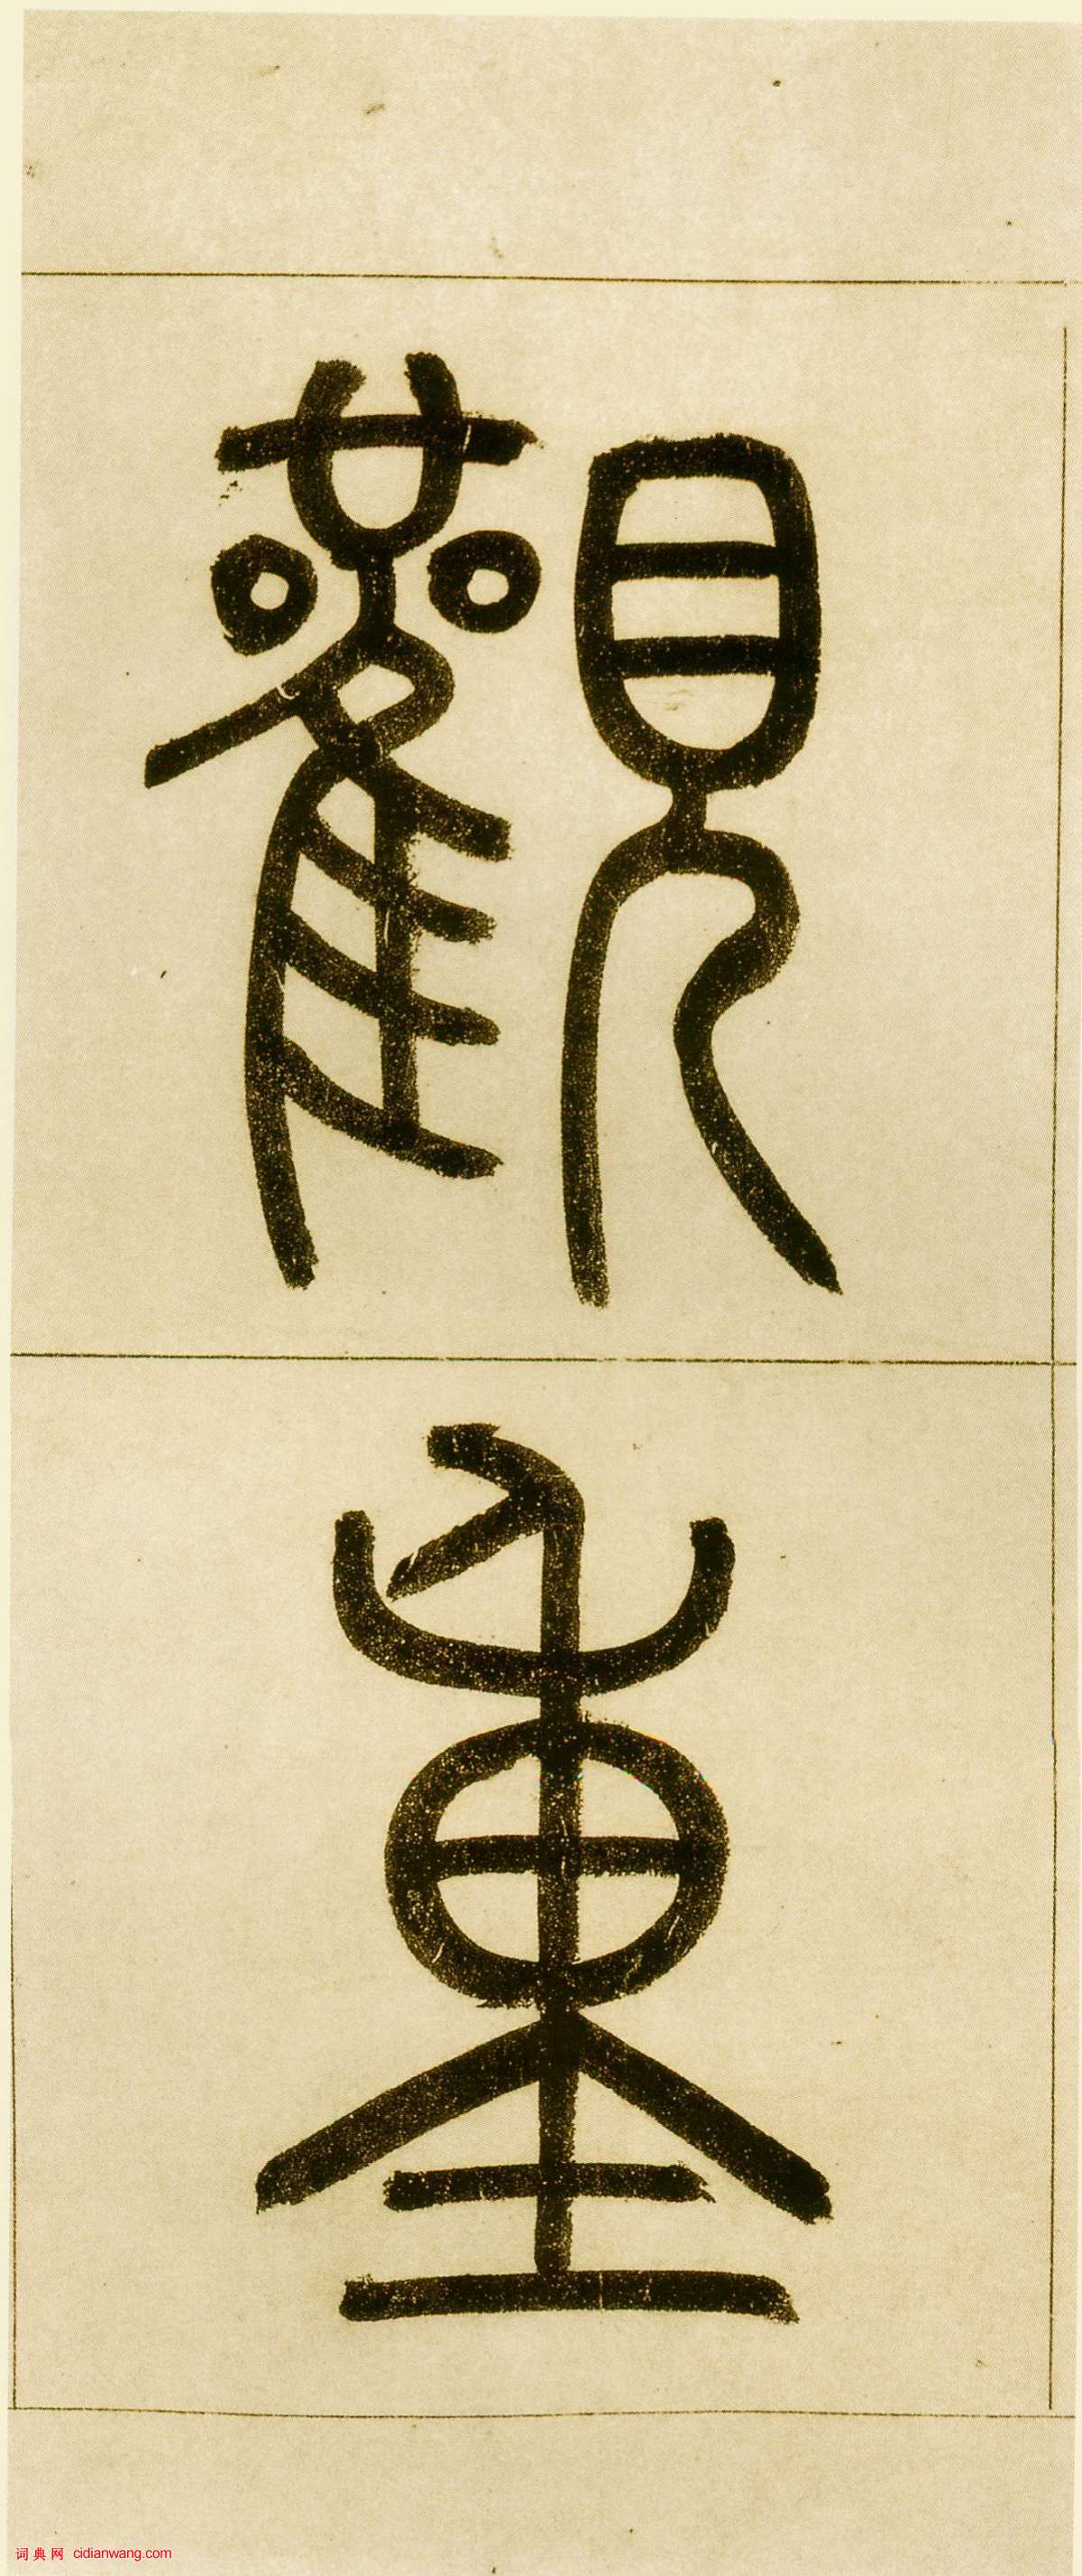 觀重
词典网 cidianwang.com